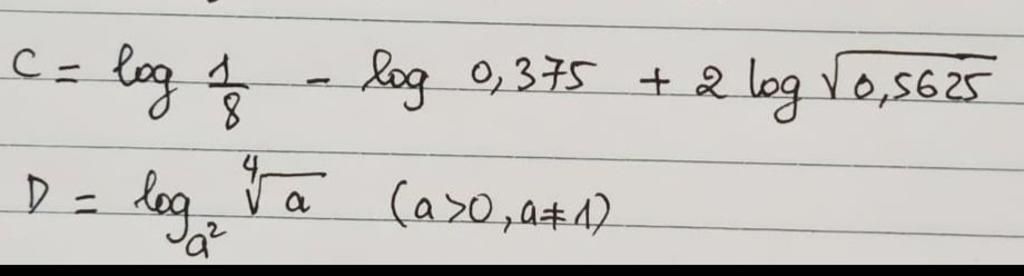 C = log 1/8 - log 0,375 + 2 log √0,5625
D = log_{a²} ⁴√a (a>0, a≠1)